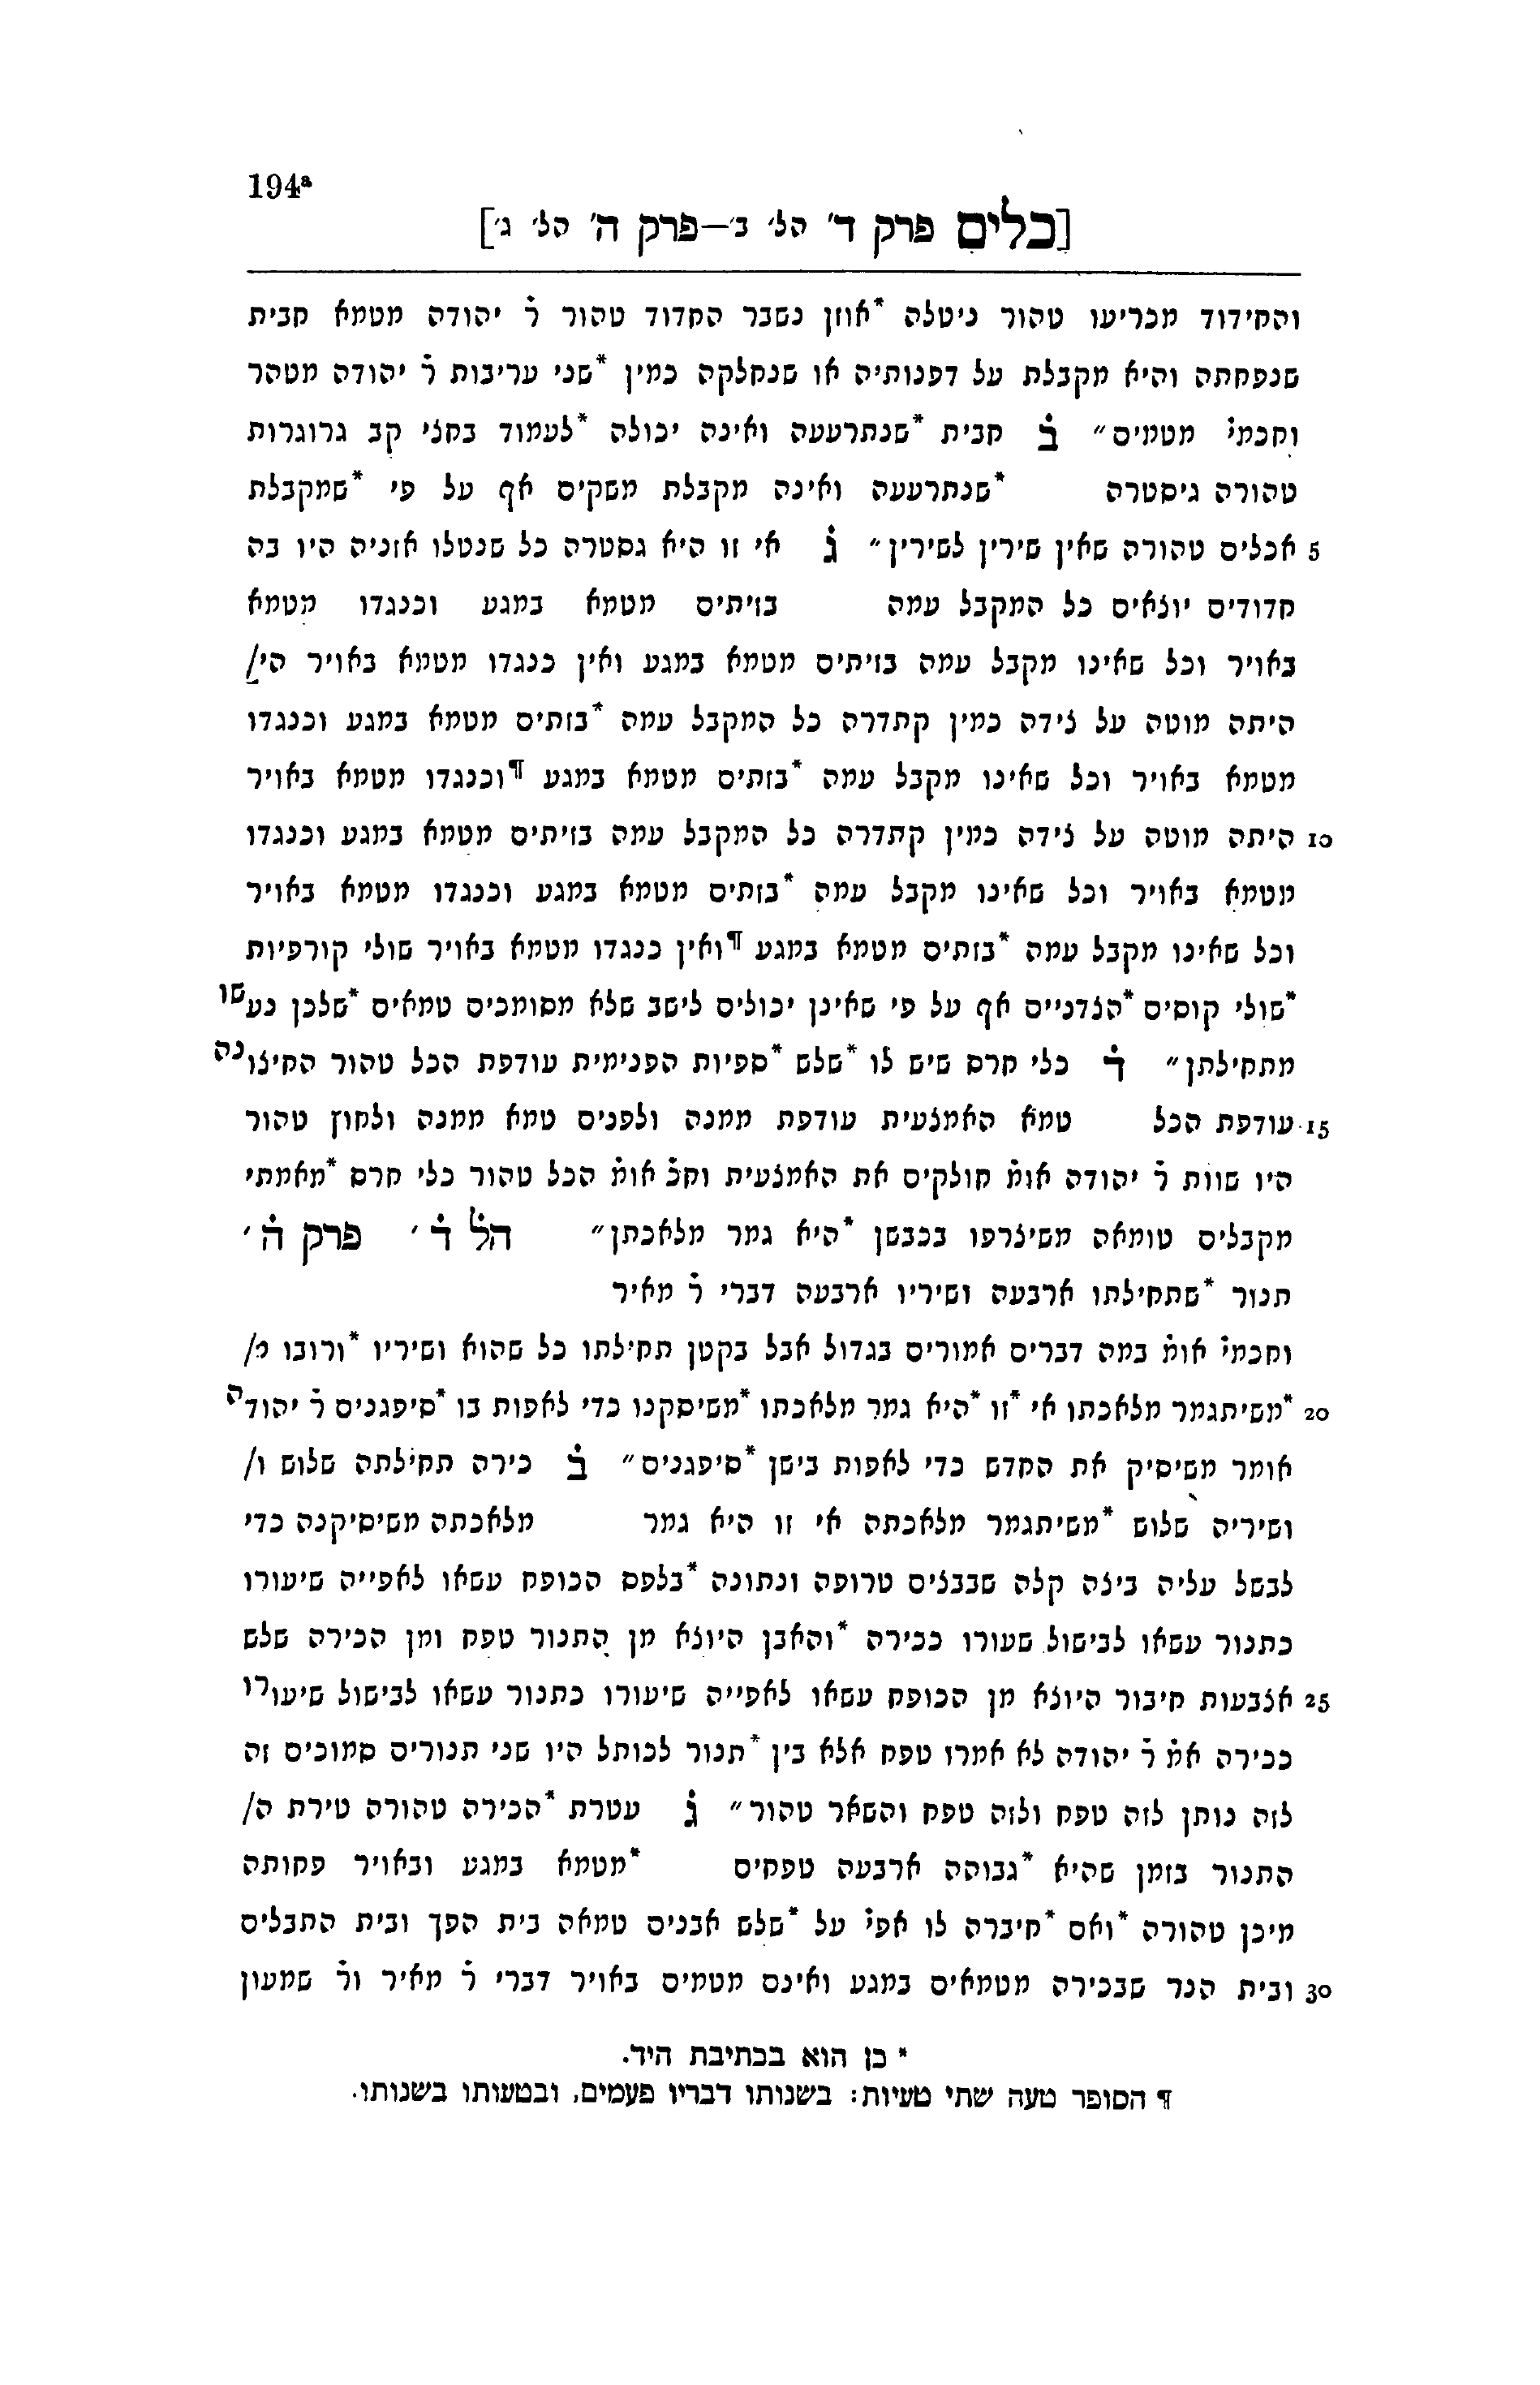 194ª
[כלים פרק ד' הל' ב'—פרק ה' הל' ג']
והחידוד מכריעו טהור ניטלה *אוזן נשבר החדוד טהור ר̇ יהודה מטמא חבית
שנפחתה והיא מקבלת על דפנותיה או שנחלקה כמין *שני עריבות ר̇ יהודה מטהר
וחכמי̇ מטמים״ ב̇ חבית *שנתרעעה ואינה יכולה *לעמוד בחצי קב גרוגרות
טהורה גיסטרה *שנתרעעה ואינה מקבלת משקים אף על פי *שמקבלת
5 אכלים טהורה שאין שירין לשירין״ ג̇ אי זו היא גסטרה כל שנטלו אזניה היו בה
חדודים יוצאים כל המקבל עמה בזיתים מטמא במגע וכנגדו מטמא
באויר וכל שאינו מקבל עמה בזיתים מטמא במגע ואין כנגדו מטמא באויר הי/
היתה מוטה על צידה כמין קתדרה כל המקבל עמה *בזתים מטמא במגע וכנגדו
מטמא באויר וכל שאינו מקבל עמה *בזתים מטמא במגע ¶וכנגדו מטמא באויר
10 היתה מוטה על צידה כמין קתדרה כל המקבל עמה בזיתים מטמא במגע וכנגדו
מטמא באויר וכל שאינו מקבל עמה *בזתים מטמא במגע וכנגדו מטמא באויר
וכל שאינו מקבל עמה *בזתים מטמא במגע ¶ואין כנגדו מטמא באויר שולי קורפיות
*שולי קוסים *הצדניים אף על פי שאינן יכולים לישב שלא מסומכים טמאים *שלכן נעשו
מתחילתן״ ד̇ כלי חרס שיש לו *שלש *ספיות הפנימית עודפת הכל טהור החיצונה
15 עודפת הכל טמא האמצעית עודפת ממנה ולפנים טמא ממנה ולחוץ טהור
היו שוות ר̇ יהודה אומ̇ חולקים את האמצעית וחכ̇ אומ̇ הכל טהור כלי חרס *מאמתי
מקבלים טומאה משיצרפו בכבשן *היא גמר מלאכתן״ הל̇ ד̇ ׳ פרק ה̇ ׳
תנור *שתחילתו ארבעה ושיריו ארבעה דברי ר̇ מאיר
וחכמי̇ אומ̇ במה דברים אמורים בגדול אבל בקטן תחילתו כל שהוא ושיריו *ורובו מ/
20 *משיתגמר מלאכתו אי *זו *היא גמר מלאכתו *משיסקנו כדי לאפות בו *סיפגנים ר̇ יהודה
אומר משיסיק את החדש כדי לאפות בישן *סיפגנים״ ב̇ כירה תחילתה שלוש ו/
ושיריה שלוש *משיתגמר מלאכתה אי זו היא גמר מלאכתה משיסיקנה כדי
לבשל עליה ביצה קלה שבבצים טרופה ונתונה *בלפס הכופח עשאו לאפייה שיעורו
כתנור עשאו לבישול שעורו ככירה *והאבן היוצא מן התנור טפח ומן הכירה שלש
25 אצבעות חיבור היוצא מן הכופח עשאו לאפייה שיעורו כתנור עשאו לבישול שיעורו
ככירה אמ̇ ר̇ יהודה לא אמרו טפח אלא בין *תנור לכותל היו שני תנורים סמוכים זה
לזה נותן לזה טפח ולזה טפח והשאר טהור״ ג̇ עטרת *הכירה טהורה טירת ה/
התנור בזמן שהיא *גבוהה ארבעה טפחים *מטמא במגע ובאויר פחותה
מיכן טהורה *ואם *חיברה לו אפי̇ על *שלש אבנים טמאה בית הפך ובית התבלים
30 ובית הנר שבכירה מטמאים במגע ואינם מטמים באויר דברי ר̇ מאיר ור̇ שמעון
* כן הוא בכתיבת היד.
¶ הסופר טעה שתי טעיות: בשנותו דבריו פעמים, ובטעותו בשנותו.